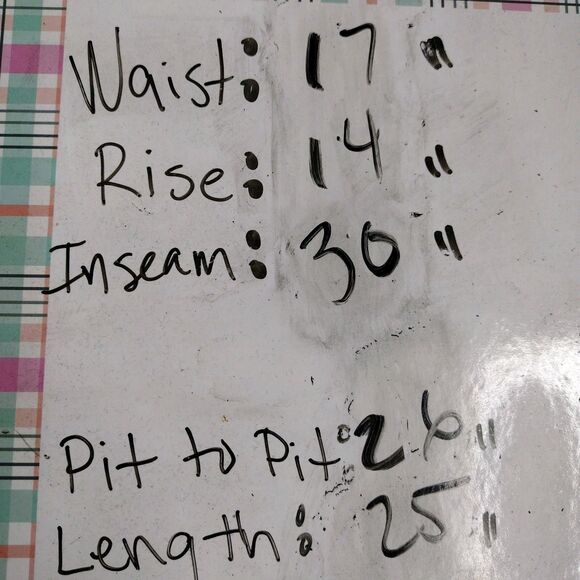 Waist: 17"
Rise: 14"
Inseam: 30"
Pit to Pit: 26"
Length: 25"